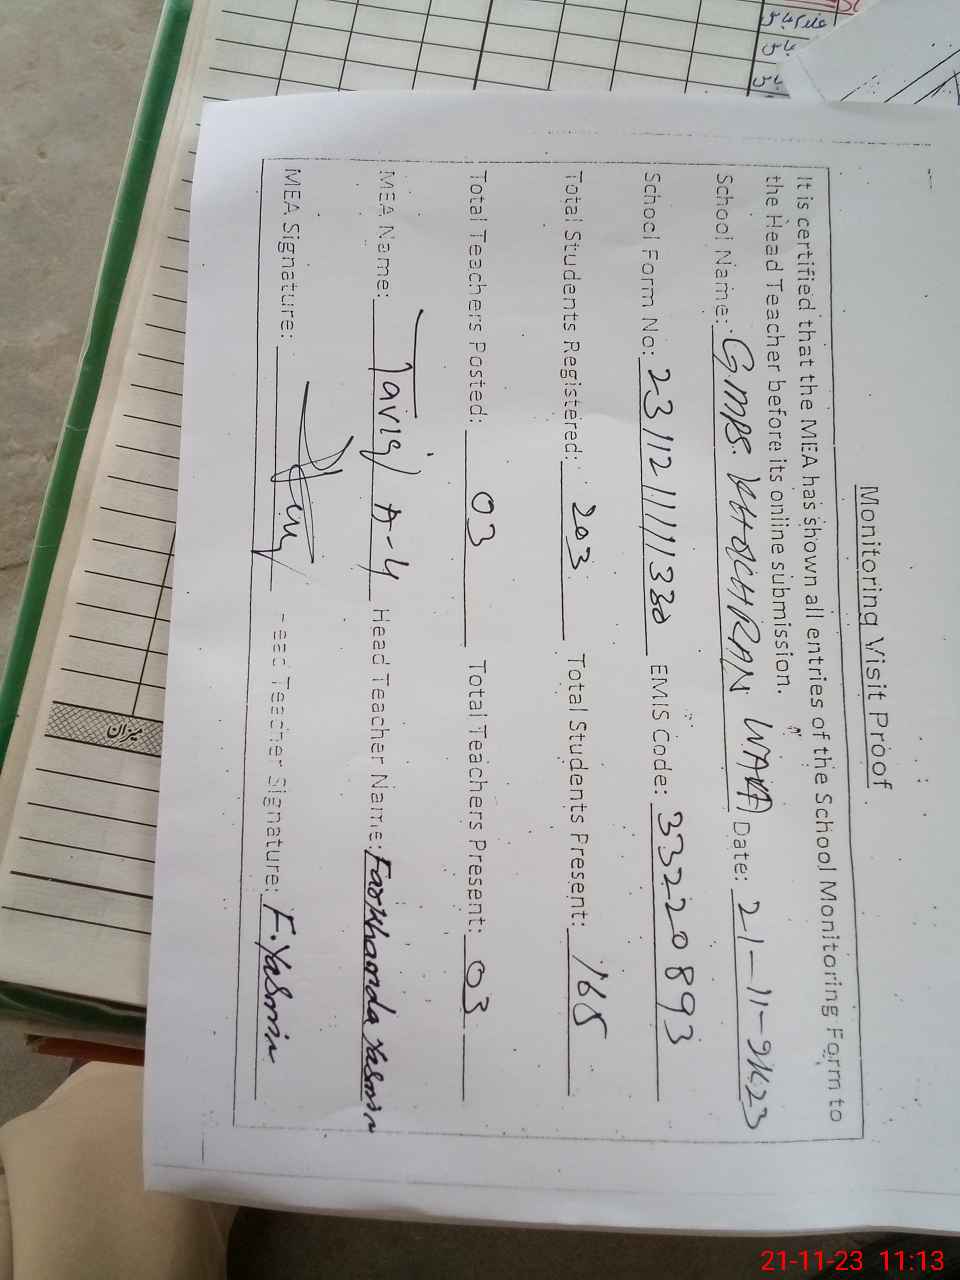 Monitoring Visit Proof
It is certified that the MEA has shown all entries of the School Monitoring Form to
the Head Teacher before its online submission.
School Name: GMPS. KHOKHRAN WALA Date: 21-11-2023
School Form No: 23112111111330 EMIS Code: 33220893
Total Students Registered: 203 Total Students Present: 165
Total Teachers Posted: 03 Total Teachers Present: 03
MEA Name: A-4 Head Teacher Name: Farkhanda Yasmin
MEA Signature: Head Teacher Signature: F.Yasmin
میزان
21-11-23 11:13